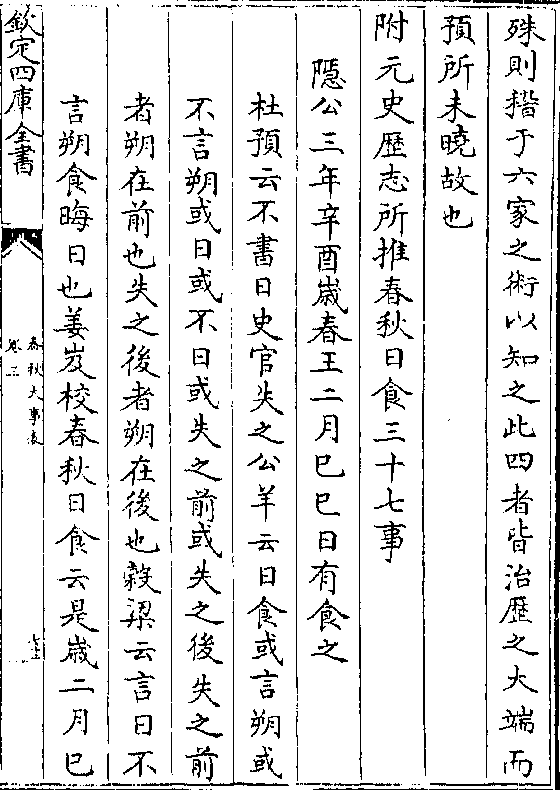 殊則稽于六家之術以知之此四者皆治歷之大端而
預所未曉故也
附元史歷志所推春秋日食三十七事
隱公三年辛酉嵗春王二月巳巳日有食之
杜預云不書日史官失之公羊云日食或言朔或
不言朔或日或不日或失之前或失之後失之前
者朔在前也失之後者朔在後也穀梁云言日不
言朔食晦日也姜岌校春秋日食云是嵗二月巳
欽定四庫全書
春秋大事表
卷三